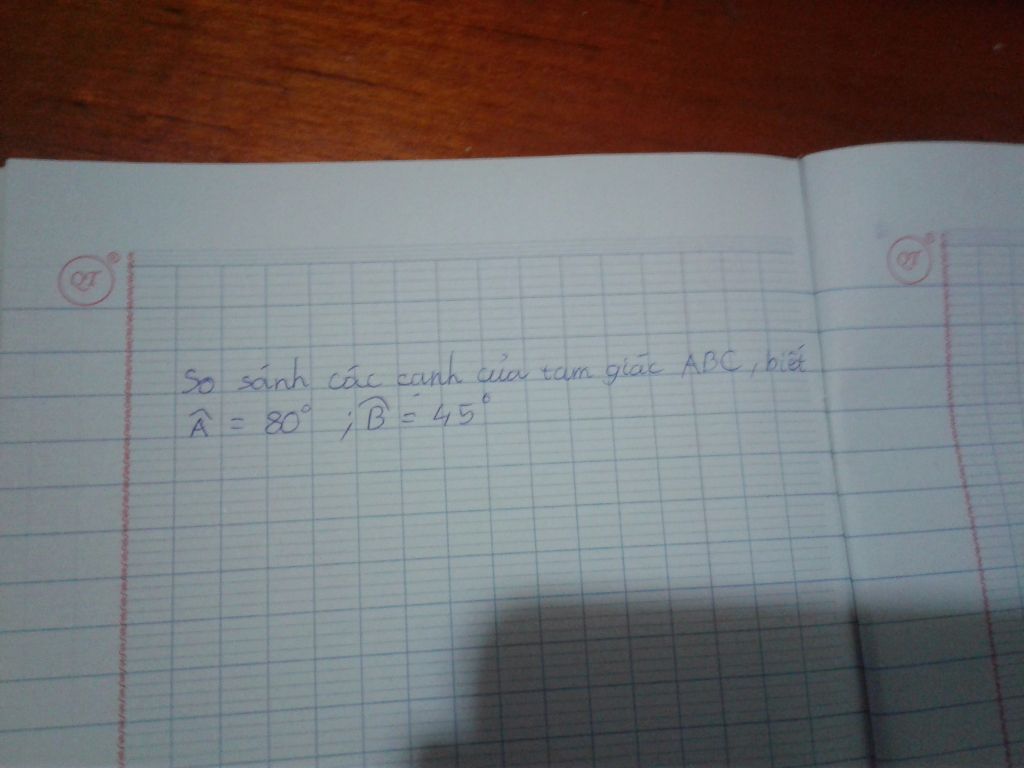 So sánh các cạnh của tam giác ABC, biết
Â = 80° ; B̂ = 45°